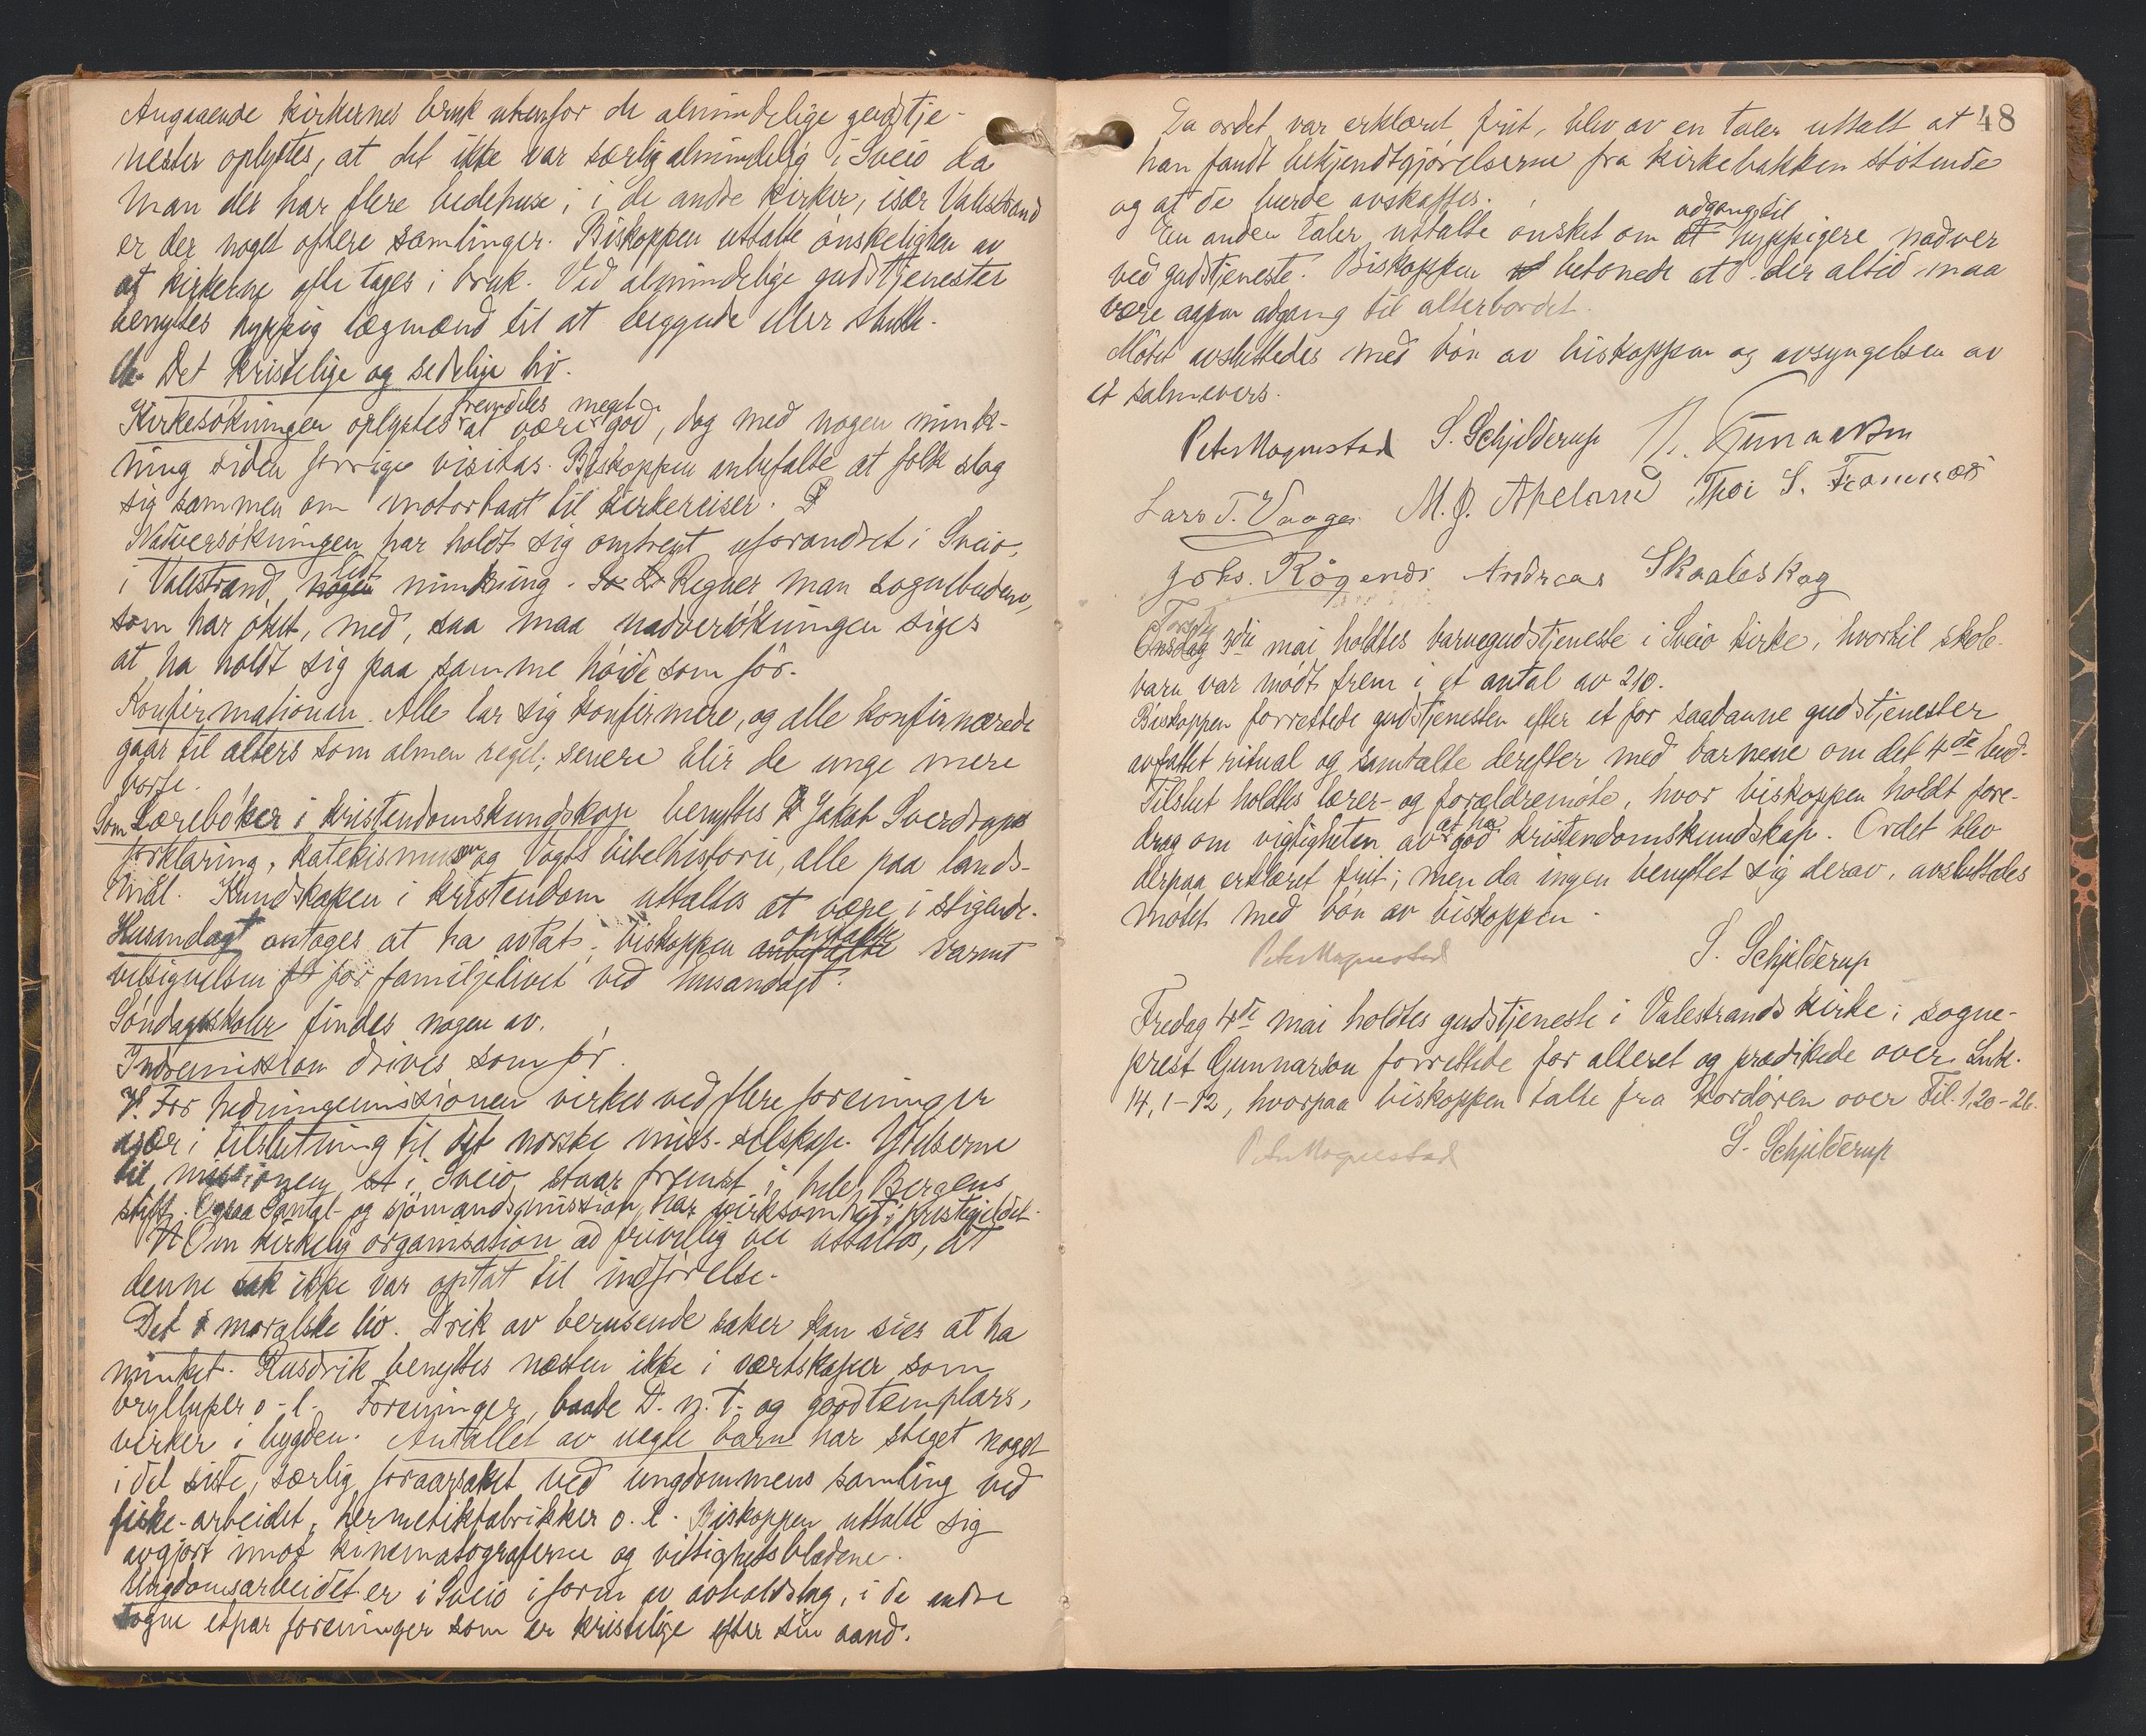 Angaaende kirkernes bruk utenfor de almindelige gudstje-
nester oplystes, at det ikke var særlig almindelig i Sveio da
man der har flere bedehuse; i de andre kirker, især Valestrand
er der noget oftere samlinger. Biskoppen uttalte ønskeligheten av
at kirkerne ofte tages i bruk. Ved almindelige gudstjenester
benyttes hyppig lægmænd til at begynde eller slutte.
Det kristelige og sedelige liv.
fremdeles meget
Kirkesøkningen oplystes at være god, dog med nogen minsk-
ning siden forrige visitas. Biskoppen anbefalte at folk slog
sig sammen om motorbaat til kirkereiser.
Nadversøkningen har holdt sig omtrent uforandret i Sveio,
litt
i Valestrand nogen minkning. Regner man sognebudene,
som har øket, med, saa maa nadversøkningen siges
at ha holdt sig paa samme høide som før.
Konfirmationen. Alle lar sig konfirmere, og alle konfirmerede
gaar til alters som almen regel; senere blir de unge mere
borte.
Som Lærebøker i kristendomskundskap benyttes Jakob Sverdrups
forklaring, katekismus og Vogts bibelhistorie, alle paa lands-
mål. Kundskapen i kristendom uttaltes at være i stigende.
Husandagt antages at ha avtat; biskoppen anbefalte varmt
velsignelsen for familjelivet ved husandagt.
Søndagsskoler findes nogen av.
Indremission drives som før.
V. For hedningemissionen virkes ved flere foreninger
især i tilslutning til det norske miss. selskap. Ydelserne
til missionen i Sveio staar fremst i hele Bergens
stift. Ogsaa Santal- og sjømandsmission har virksomhet i prestegjeldet.
VI Om kirkelig organisation ad frivillig vei uttaltes, at
denne sak ikke var optat til indførelse.
Det moralske liv. Drik av berusende saker kan sies at ha
minket. Rusdrik benyttes næsten ikke i værtskaper som
brylluper o-l. Foreninger, baade D. n. T. og goodtemplars,
virker i bygden. Antallet av uegte barn har steget noget
i det siste, særlig foraarsaket ved ungdommens samling ved
fiske-arbeidet, hermetikfabrikker o. l. Biskoppen uttalte sig
avgjort imot kinematograferne og vittighetsbladene.
Ungdomsarbeidet er i Sveio i form av avholdslag, i de andre
sogne etpar foreninger som er kristelige efter sin aand.
48
Da ordet var erklæret frit, blev av en taler uttalt at
han fandt bekjendtgjørelserne fra kirkebakken støtende
og at de burde avskaffes.
adgang til
En anden taler uttalte ønsket om at hyppigere nadver
ved gudstjeneste. Biskoppen betonede at der altid maa
være aapen adgang til alterbordet.
Møtet avsluttedes med bøn av biskoppen og avsyngelsen av
et salmevers.
Peter Magnestad S. Schjelderup N. Gunnarson
Lars T. Vaage. M. J. Apeland Thoi S. Framnæs
Johs. Røgenes Andreas Skaaleskog
Torsdag
Onsdag 3die mai holdtes barnegudstjeneste i Sveio kirke, hvortil skole-
barn var mødt frem i et antal av 210.
Biskoppen forrettede gudstjenesten efter et for saadanne gudstjenester
avfattet ritual og samtalte derefter med barnene om det 4de bud.
Tilslut holdtes lærer- og forældremøte, hvor biskoppen holdt fore-
at ha
drag om vigtigheten av god kristendomskundskap. Ordet blev
derpaa erklæret frit; men da ingen benyttet sig derav, avsluttedes
møtet med bøn av biskoppen.
Peter Magnestad S. Schjelderup
Fredag 4de mai holdtes gudstjeneste i Valestrands kirke; sogne-
prest Gunnarson forrettede for alteret og prædikede over Luk.
14, 1-12, hvorpaa biskoppen talte fra kordøren over Fil. 1,20-26.
Peter Magnestad S. Schjelderup